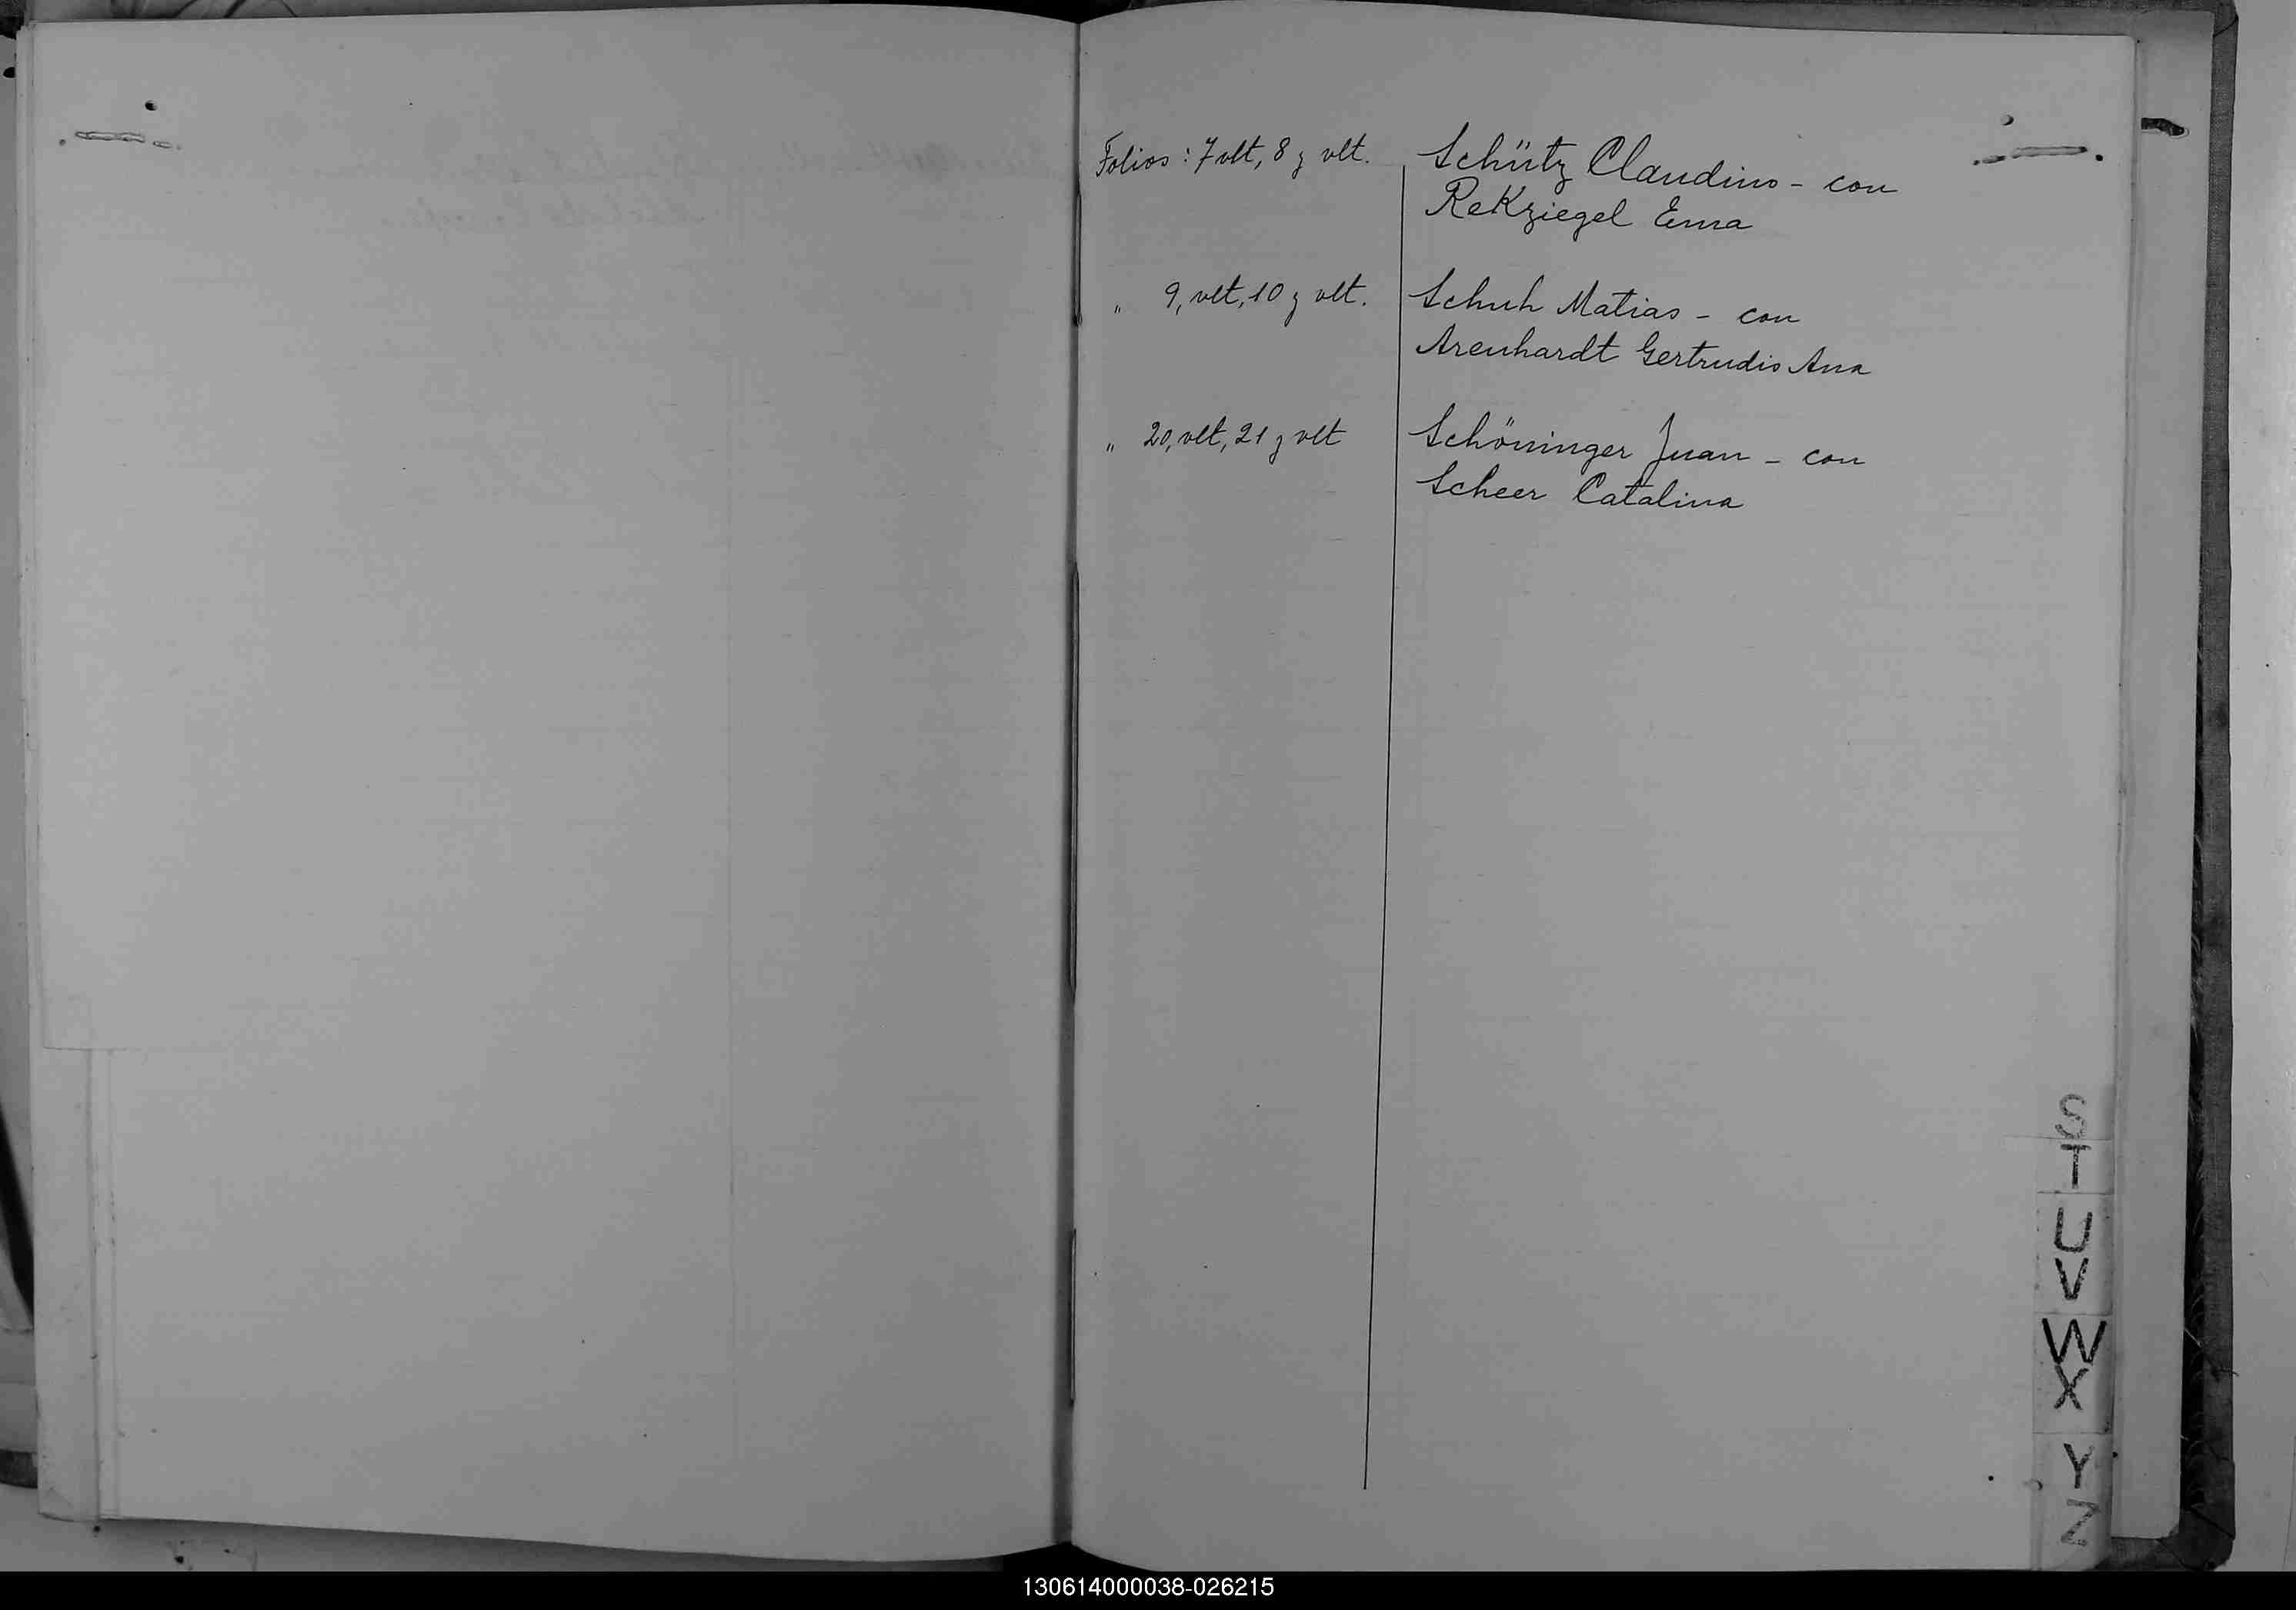 Folios: 7 vlt, 8 y vlt. Schütz Claudino - con
ReKziegel Erna
" 9, vlt, 10 y vlt. Schuh Matias - con
Arenhardt Gertrudis Ana
" 20, vlt, 21 y vlt Schöninger Juan - con
Scheer Catalina
S
T
U
V
W
X
Y
Z
130614000038-026215